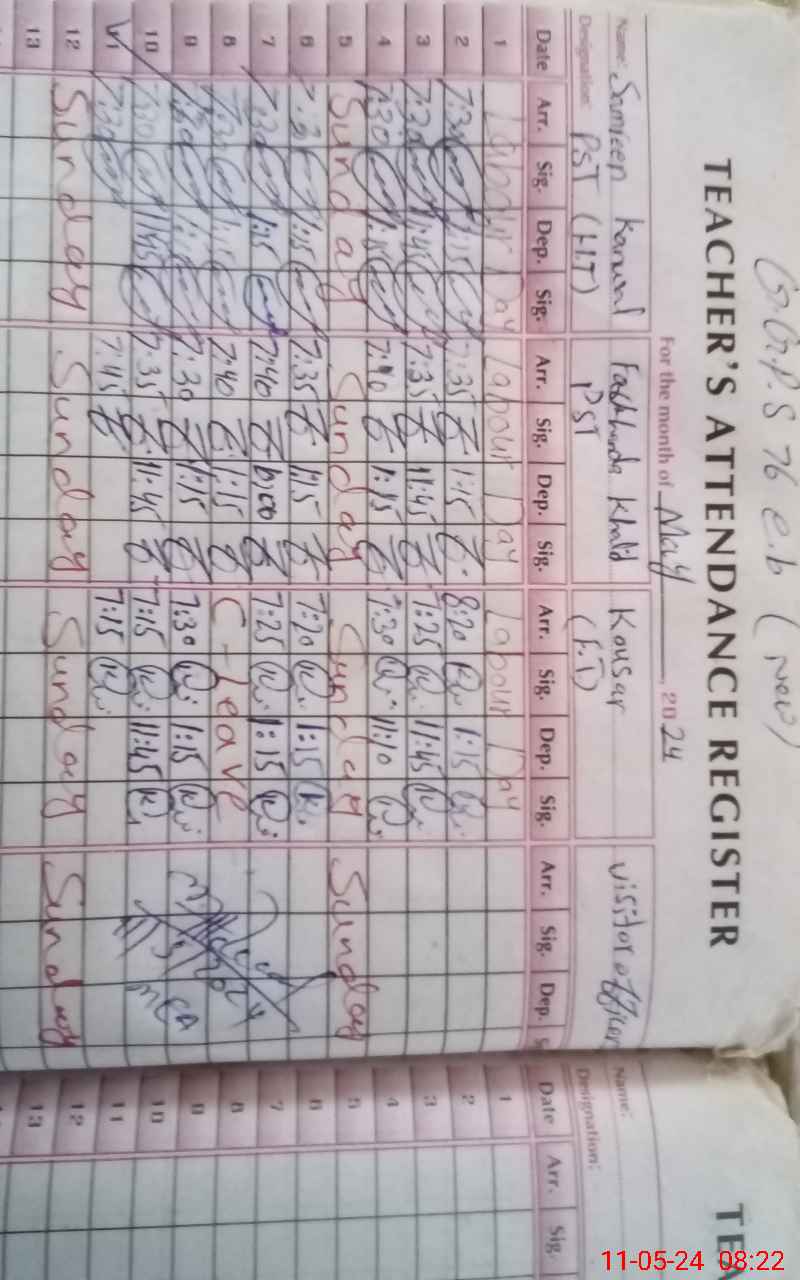 G.G.P.S 76 e.b (new)
TEACHER'S ATTENDANCE REGISTER
For the month of May, 2024
Name: Kanwal Khalid Kousar visitor officer
Designation: PST (H.T) PST (F.T)
Date Arr. Sig. Dep. Sig. Arr. Sig. Dep. Sig. Arr. Sig. Dep. Sig. Arr. Sig. Dep. S
1 Labour Day Labour Day Labour Day
2 7:30 1:15 7:35 1:15 8:20 1:15
3 7:30 11:45 7:35 11:45 7:25 11:45
4 7:30 1:15 7:40 1:15 7:30 11:10
5 Sunday Sunday Sunday Sunday
6 7:30 1:15 7:35 1:15 7:20 1:15
7 7:30 1:15 7:40 7:25 1:15
8 7:30 1:15 7:40 1:15 C-Leave
9 7:30 1:15 7:30 1:15 7:30 1:15
10 7:30 11:45 7:35 11:45 7:15 11:45 MEA
11 7:30 7:45 7:15
12 Sunday Sunday Sunday Sunday
13
TEA
Name:
Designation:
Date Arr. Sig.
1
2
3
4
5
6
7
8
9
10
11
12
13
11-05-24 08:22